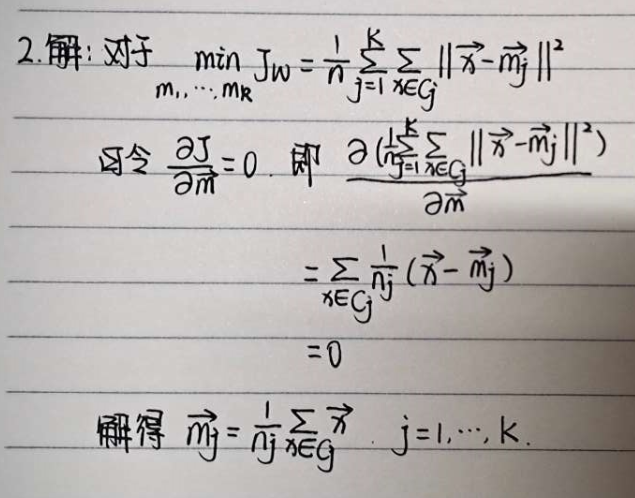 2.解:对于 min_{m_1,…,m_K} J_W = \frac{1}{n} \sum_{j=1}^{K} \sum_{x∈C_j} ||\vec{x} - \vec{m_j}||^2
可令 \frac{∂J}{∂\vec{m}} = 0. 即 \frac{∂(\frac{1}{n} \sum_{j=1}^{K} \sum_{x∈C_j} ||\vec{x} - \vec{m_j}||^2)}{∂\vec{m}}
= \sum_{x∈C_j} \frac{1}{n_j} (\vec{x} - \vec{m_j})
= 0
解得 \vec{m_j} = \frac{1}{n_j} \sum_{x∈C_j} \vec{x} . j=1,…,K.